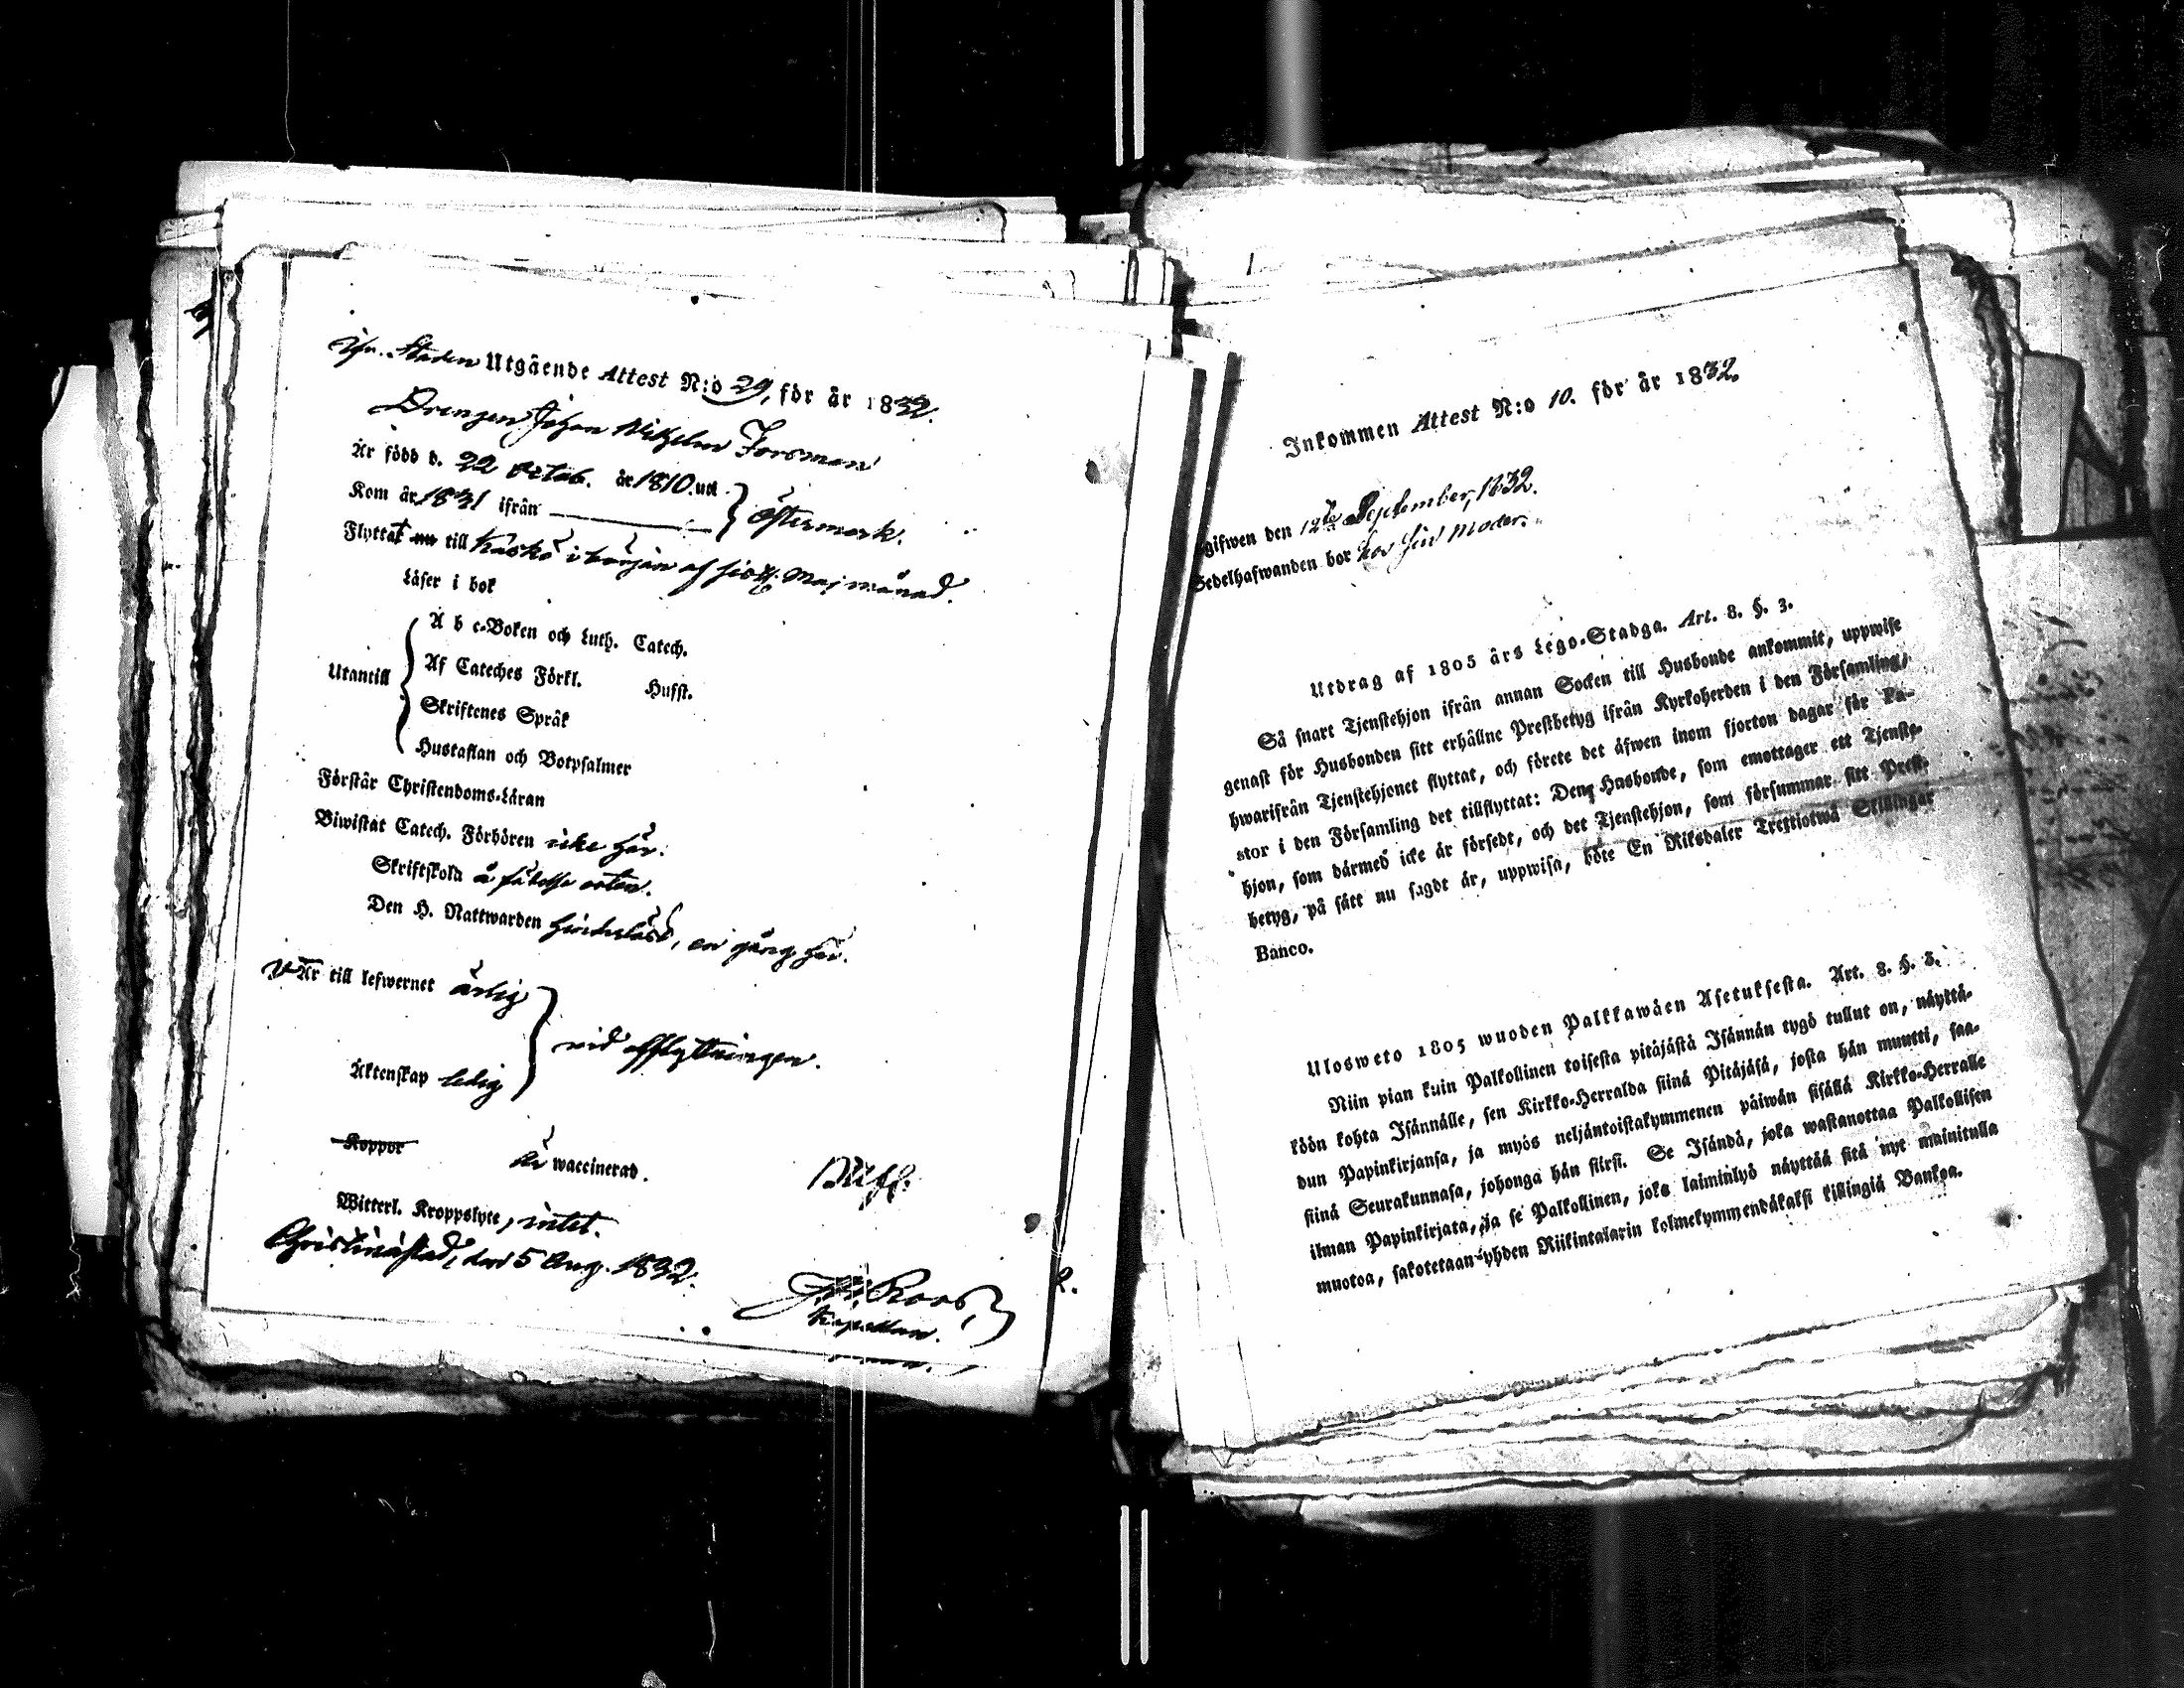 Ifr. Staden Utgående Attest N:o 29, för år 1832.
Drengen Johan Wilhelm Forsman
Är född d. 22 Octob. år 1810. uti
Kom år 1831 ifrån Östermark.
Flyttat nu till Kaskö i början af sistl. Maj månad.
Läser i bok
A b c-Boken och Luth. Catech.
Utantill Af Cateches Förkl. Hufst.
Skriftenes Språk
Hustaflan och Botpsalmer
Förstår Christendoms-Läran
Biwistat Catech. Förhören icke här.
Skriftskola å födelse orten.
Den H. Nattwarden en gång här.
Är till lefwernet ärlig
vid afflyttningen.
Äktenskap ledig
Koppor är waccinerad.
Witterl. Kroppslyte, intet.
Christinæstad, den 5 Aug. 1832.
Roos,
Kapellan.
Inkommen Attest N:o 10. för år 1832.
gifwen den 12te September, 1832.
Sedelhafwanden bor hos sin Moder.
Utdrag af 1805 års Lego-Stadga. Art. 8. §. 3.
Så snart Tjenstehjon ifrån annan Socken till Husbonde ankommit, uppwise
genast för Husbonden sitt erhållne Prestbetyg ifrån Kyrkoherden i den Församling,
hwarifrån Tjenstehjonet flyttat, och förete det äfwen inom fjorton dagar för Pa-
stor i den Församling det tillflyttat: Den Husbonde, som emottager ett Tjenste-
hjon, som därmed icke är försedt, och det Tjenstehjon, som försummar sitt Prest-
betyg, på sätt nu sagdt är, uppwisa, böte En Riksdaler Trettiotwå Skillingar
Banco.
Ulosweto 1805 wuoden Palkkawäen Asetuksesta. Art. 8. §. 3.
Niin pian kuin Palkollinen toisesta pitäjästä Isännän tygö tullut on, näyttä-
köön kohta Isännälle, sen Kirkko-Herralda siinä Pitäjäsä, josta hän muutti, saa-
dun Papinkirjansa, ja myös neljäntoistakymmenen päiwän sisällä Kirkko-Herralle
siinä Seurakunnasa, johonga hän siirsi. Se Isändä, joka wastanottaa Palkollisen
ilman Papinkirjata, ja se Palkollinen, joka laiminlyö näyttää sitä nyt mainitulla
muotoa, sakotetaan yhden Riikintalarin kolmekymmendäkaksi killingiä Bankoa.